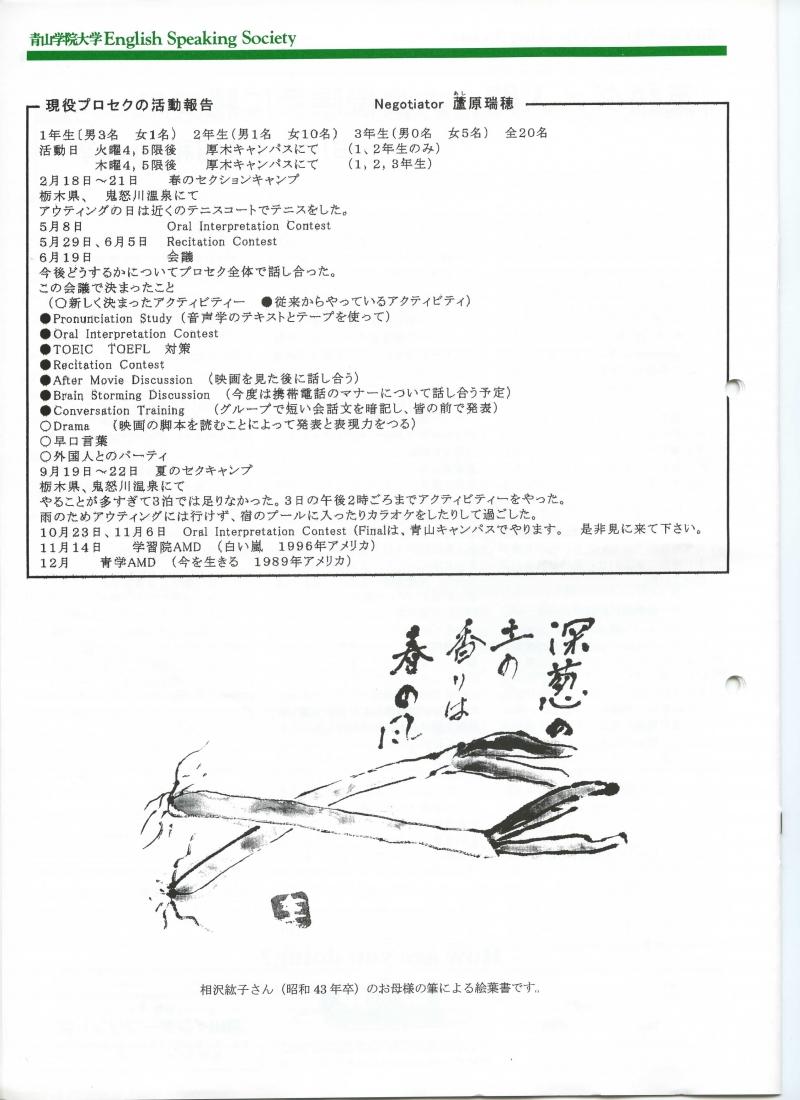 青山学院大学 English Speaking Society
現役プロセクの活動報告　Negotiator 蘆原瑞穂
あし
1年生〔男3名　女1名）　2年生（男1名　女10名）　3年生（男0名　女5名）　全20名
活動日　火曜4，5限後　厚木キャンパスにて　（1、2年生のみ）
木曜4，5限後　厚木キャンパスにて　（1，2，3年生）
2月18日～21日　春のセクションキャンプ
栃木県、　鬼怒川温泉にて
アウティングの日は近くのテニスコートでテニスをした。
5月8日　Oral Interpretation Contest
5月29日、6月5日　Recitation Contest
6月19日　会議
今後どうするかについてプロセク全体で話し合った。
この会議で決まったこと
（○新しく決まったアクティビティー　●従来からやっているアクティビティ）
●Pronunciation Study（音声学のテキストとテープを使って）
●Oral Interpretation Contest
●TOEIC　TOEFL　対策
●Recitation Contest
●After Movie Discussion　（映画を見た後に話し合う）
●Brain Storming Discussion　（今度は携帯電話のマナーについて話し合う予定）
●Conversation Training　（グループで短い会話文を暗記し、皆の前で発表）
○Drama　（映画の脚本を読むことによって発表と表現力をつる）
○早口言葉
○外国人とのパーティ
9月19日～22日　夏のセクキャンプ
栃木県、鬼怒川温泉にて
やることが多すぎて3泊では足りなかった。3日の午後2時ごろまでアクティビティーをやった。
雨のためアウティングには行けず、宿のプールに入ったりカラオケをしたりして過ごした。
10月23日、11月6日　Oral Interpretation Contest（Finalは、青山キャンパスでやります。　是非見に来て下さい。
11月14日　学習院AMD　（白い嵐　1996年アメリカ）
12月　青学AMD　（今を生きる　1989年アメリカ）
深葱の
土の
香りは
春の風
相沢紘子さん（昭和43年卒）のお母様の筆による絵葉書です。.